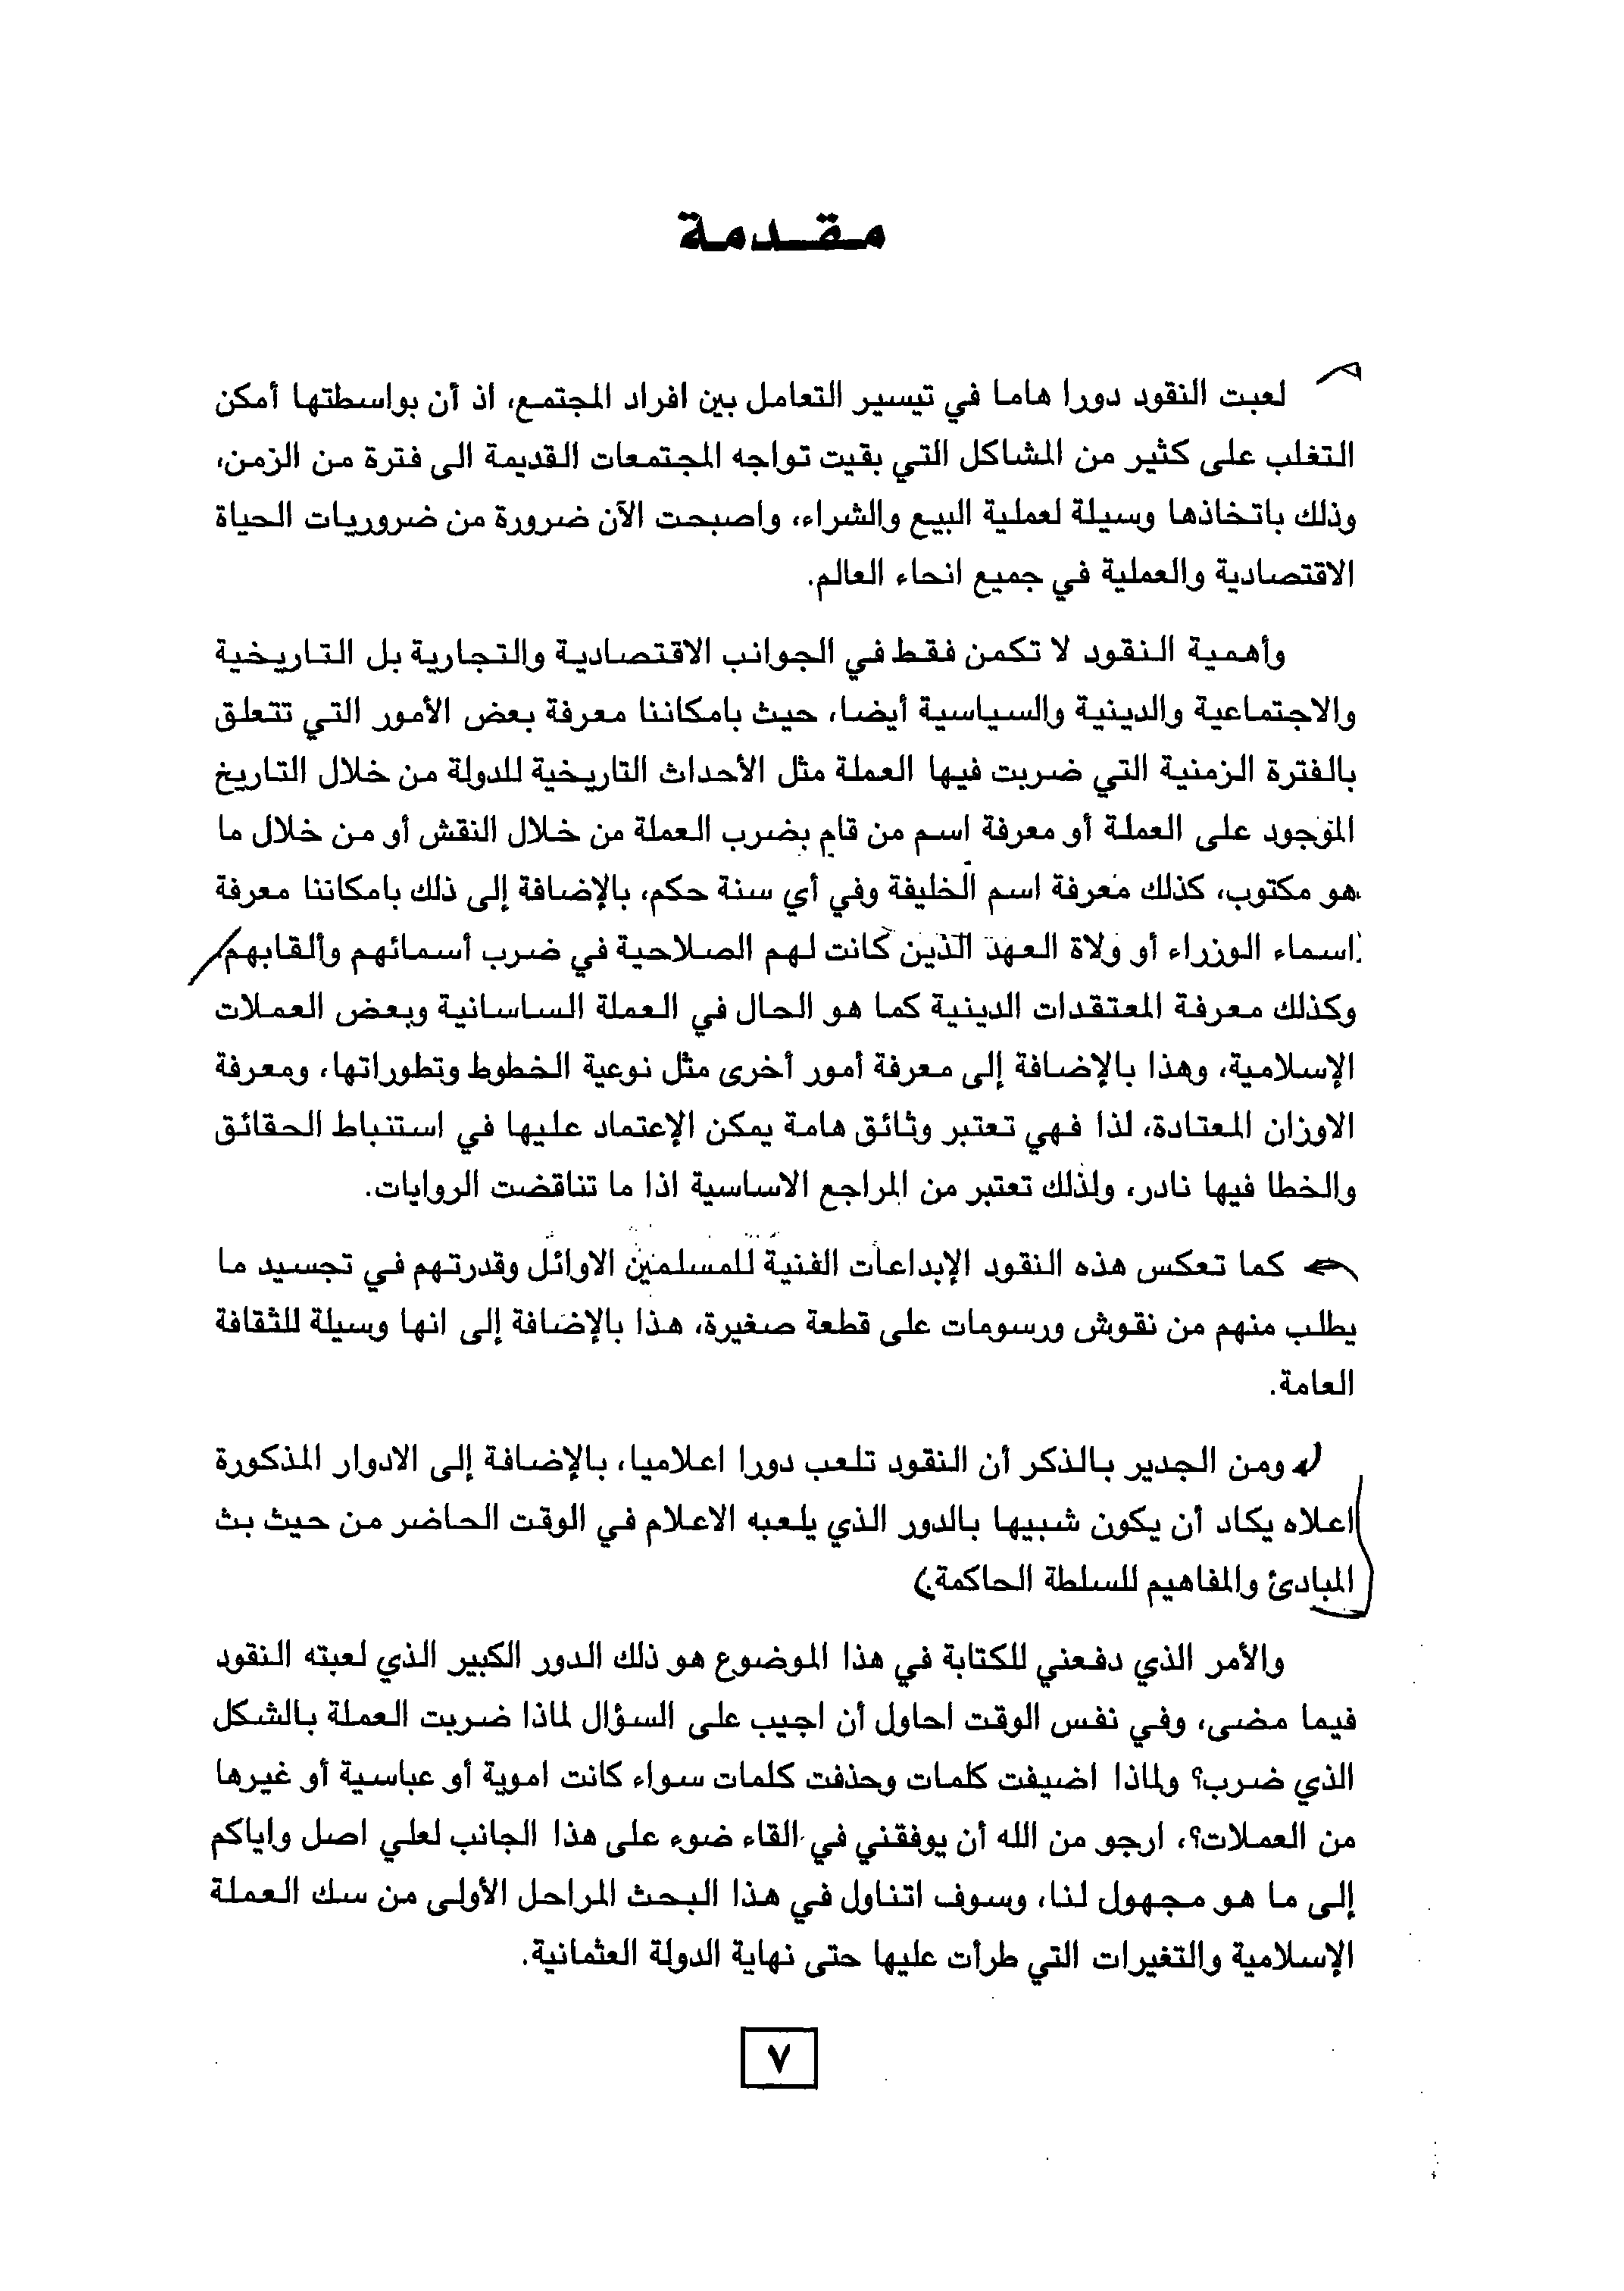 مقدمة
لعبت النقود دورا هاما في تيسير التعامل بين افراد المجتمع، اذ أن بواسطتها أمكن
التغلب على كثير من المشاكل التي بقيت تواجه المجتمعات القديمة الى فترة من الزمن،
وذلك باتخاذها وسيلة لعملية البيع والشراء، واصبحت الآن ضرورة من ضروريات الحياة
الاقتصادية والعملية في جميع انحاء العالم.
وأهمية النقود لا تكمن فقط في الجوانب الاقتصادية والتجارية بل التاريخية
والاجتماعية والدينية والسياسية أيضا، حيث بامكاننا معرفة بعض الأمور التي تتعلق
بالفترة الزمنية التي ضربت فيها العملة مثل الأحداث التاريخية للدولة من خلال التاريخ
الموجود على العملة أو معرفة اسم من قام بضرب العملة من خلال النقش أو من خلال ما
هو مكتوب، كذلك معرفة اسم الخليفة وفي أي سنة حكم، بالإضافة إلى ذلك بامكاننا معرفة
اسماء الوزراء أو ولاة العهد الذين كانت لهم الصلاحية في ضرب أسمائهم وألقابهم،
وكذلك معرفة المعتقدات الدينية كما هو الحال في العملة الساسانية وبعض العملات
الإسلامية، وهذا بالإضافة إلى معرفة أمور أخرى مثل نوعية الخطوط وتطوراتها، ومعرفة
الاوزان المعتادة، لذا فهي تعتبر وثائق هامة يمكن الإعتماد عليها في استنباط الحقائق
والخطا فيها نادر، ولذلك تعتبر من المراجع الاساسية اذا ما تناقضت الروايات.
كما تعكس هذه النقود الإبداعات الفنية للمسلمين الاوائل وقدرتهم في تجسيد ما
يطلب منهم من نقوش ورسومات على قطعة صغيرة، هذا بالإضافة إلى انها وسيلة للثقافة
العامة.
ومن الجدير بالذكر أن النقود تلعب دورا اعلاميا، بالإضافة إلى الادوار المذكورة
اعلاه يكاد أن يكون شبيها بالدور الذي يلعبه الاعلام في الوقت الحاضر من حيث بث
المبادئ والمفاهيم للسلطة الحاكمة.
والأمر الذي دفعني للكتابة في هذا الموضوع هو ذلك الدور الكبير الذي لعبته النقود
فيما مضى، وفي نفس الوقت احاول أن اجيب على السؤال لماذا ضربت العملة بالشكل
الذي ضرب؟ ولماذا اضيفت كلمات وحذفت كلمات سواء كانت اموية أو عباسية أو غيرها
من العملات؟، ارجو من الله أن يوفقني في القاء ضوء على هذا الجانب لعلي اصل واياكم
إلى ما هو مجهول لنا، وسوف اتناول في هذا البحث المراحل الأولى من سك العملة
الإسلامية والتغيرات التي طرأت عليها حتى نهاية الدولة العثمانية.
٧